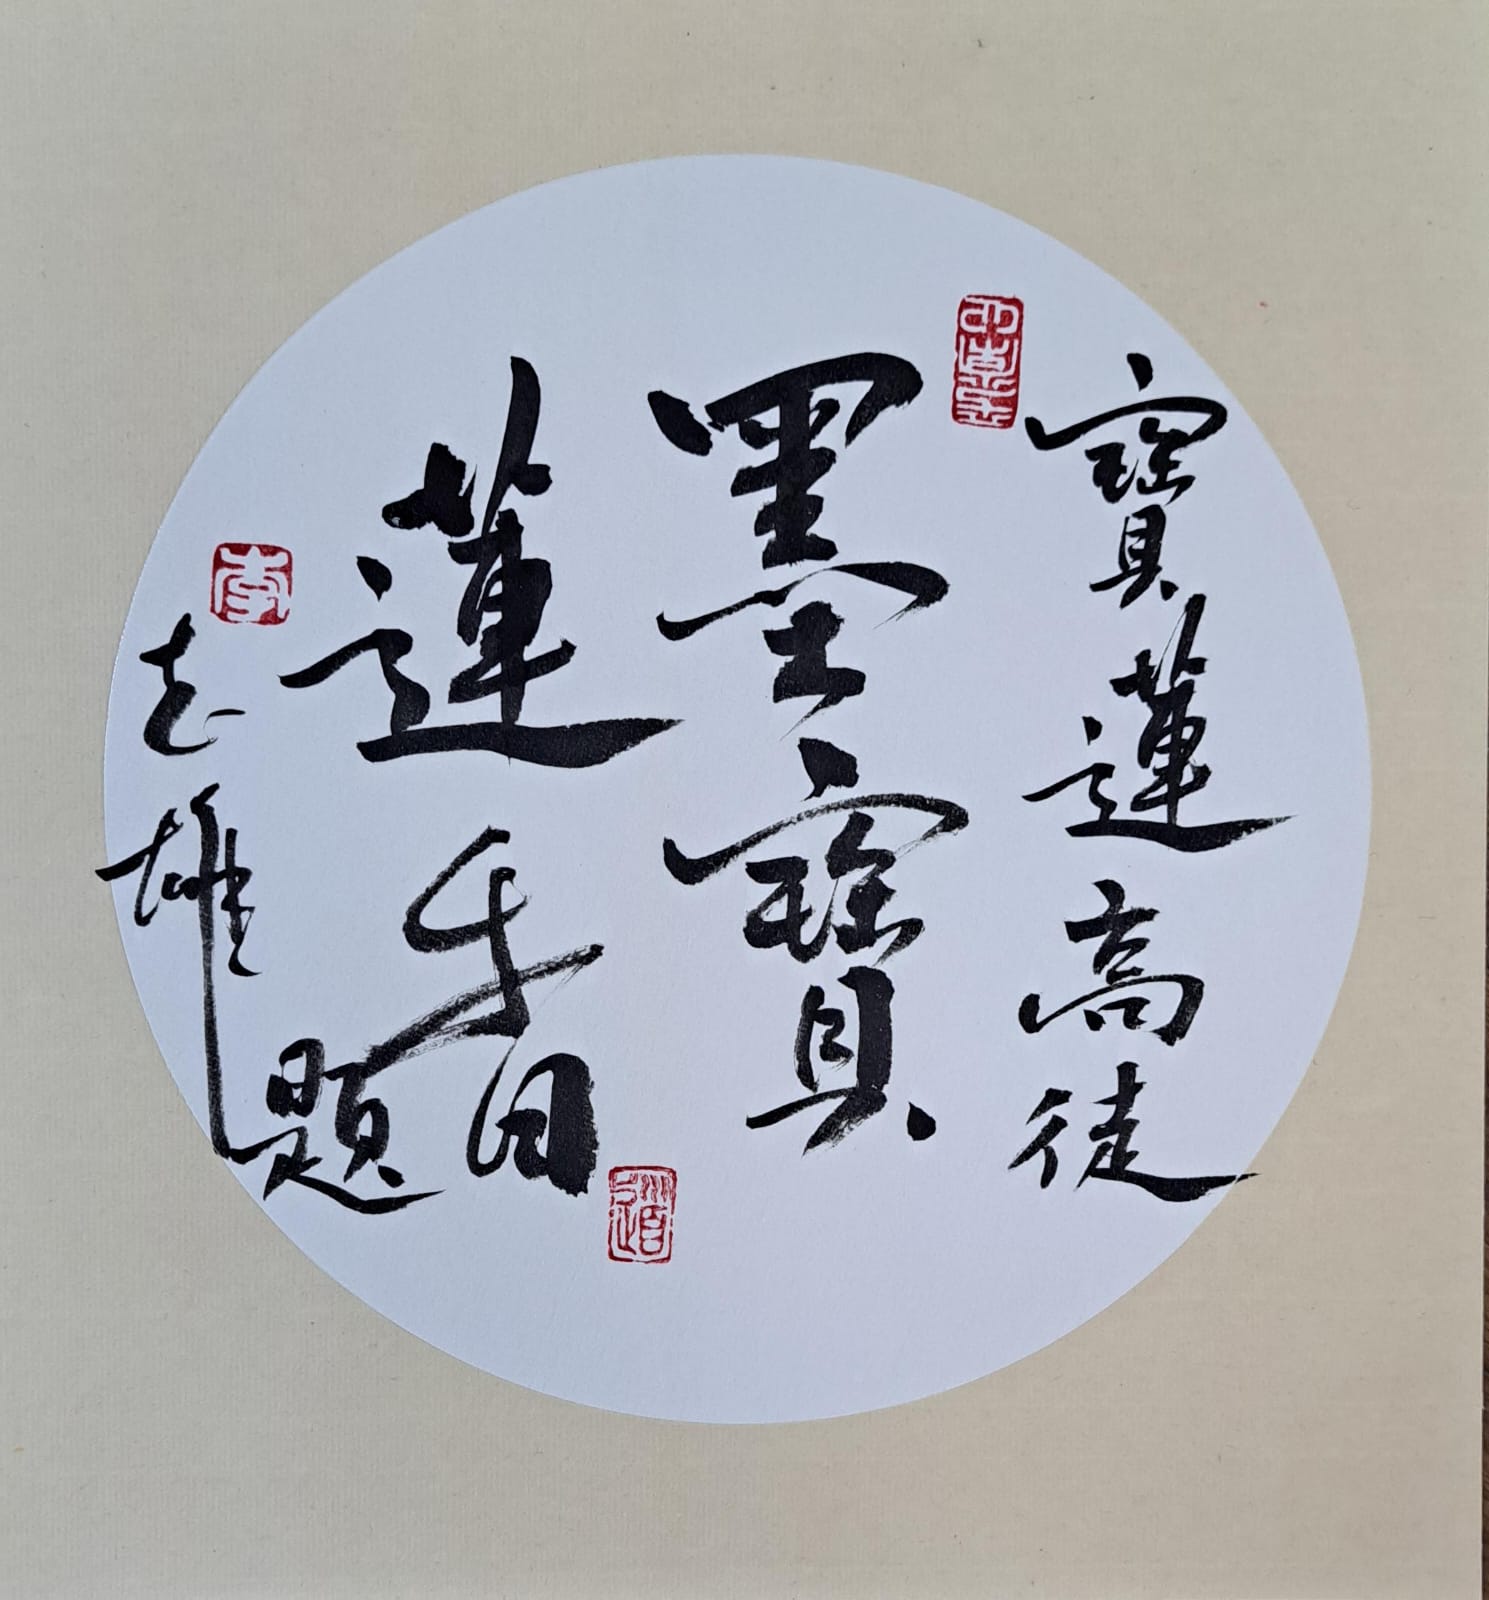 寶蓮高徒
墨寶
蓮香
志雄題
李